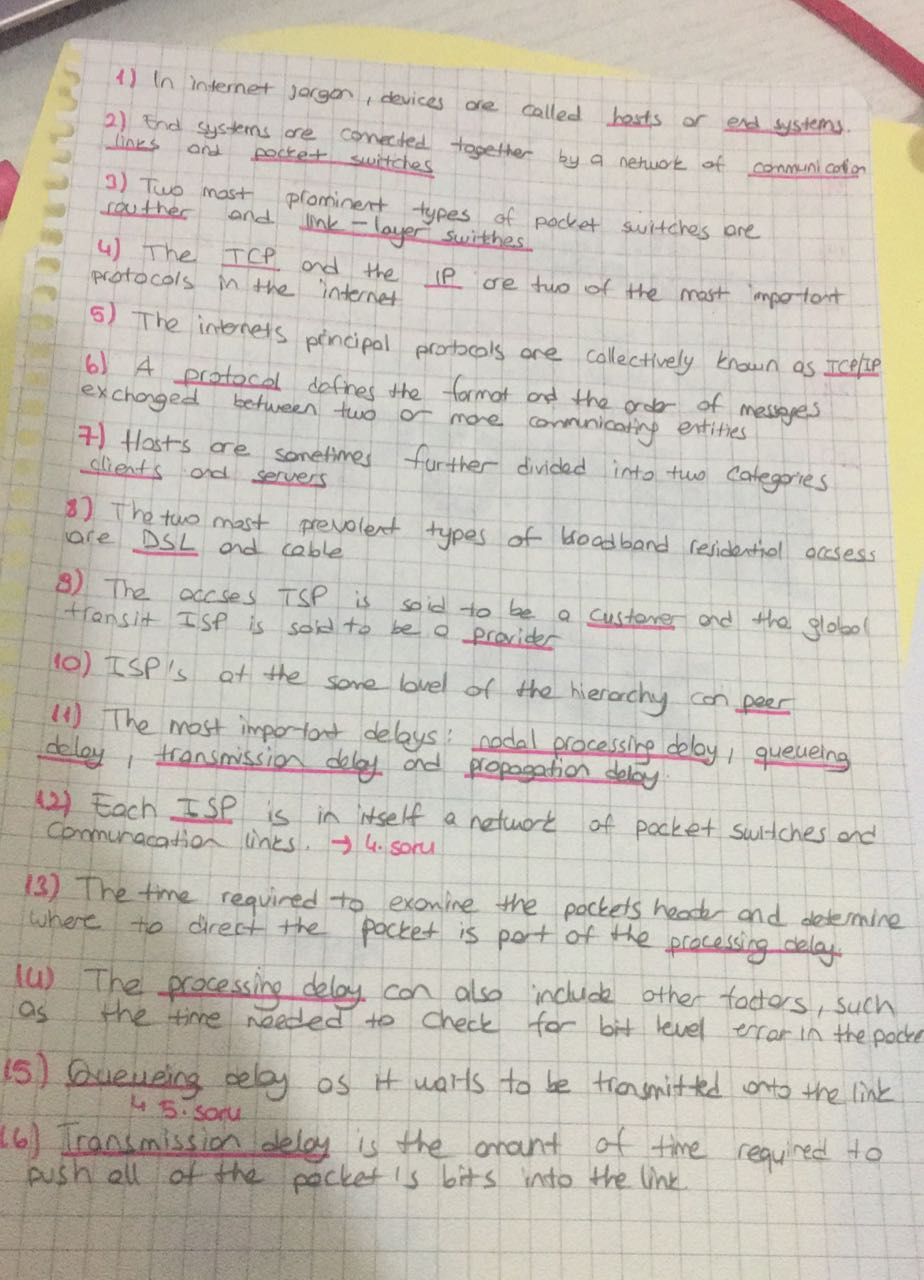 1) In internet jargon, devices are called hosts or end systems.
2) End systems are connected together by a network of communication
links and packet switches
3) Two most prominent types of packet switches are
routher and link-layer swithes
4) The TCP and the IP are two of the most important
protocols in the internet
5) The internets principal protocols are collectively known as TCP/IP
6) A protocol defines the format and the order of messages
exchanged between two or more communicating entities
7) Hosts are sometimes further divided into two categories
clients and servers
8) The two most prevalent types of broadband residential accsess
are DSL and cable
9) The accses ISP is said to be a customer and the global
transit ISP is said to be a provider
10) ISP's at the same level of the hierarchy can peer
11) The most important delays: nodal processing delay, queueing
delay, transmission delay and propagation delay.
12) Each ISP is in itself a network of packet switches and
communacation links. → 4. soru
13) The time required to examine the packets header and determine
where to direct the packet is part of the processing delay.
14) The processing delay can also include other factors, such
as the time needed to check for bit level error in the packe
15) Queueing delay as it waits to be transmitted onto the link
↳ 5. soru
16) Transmission delay is the amount of time required to
push all of the packet's bits into the link.